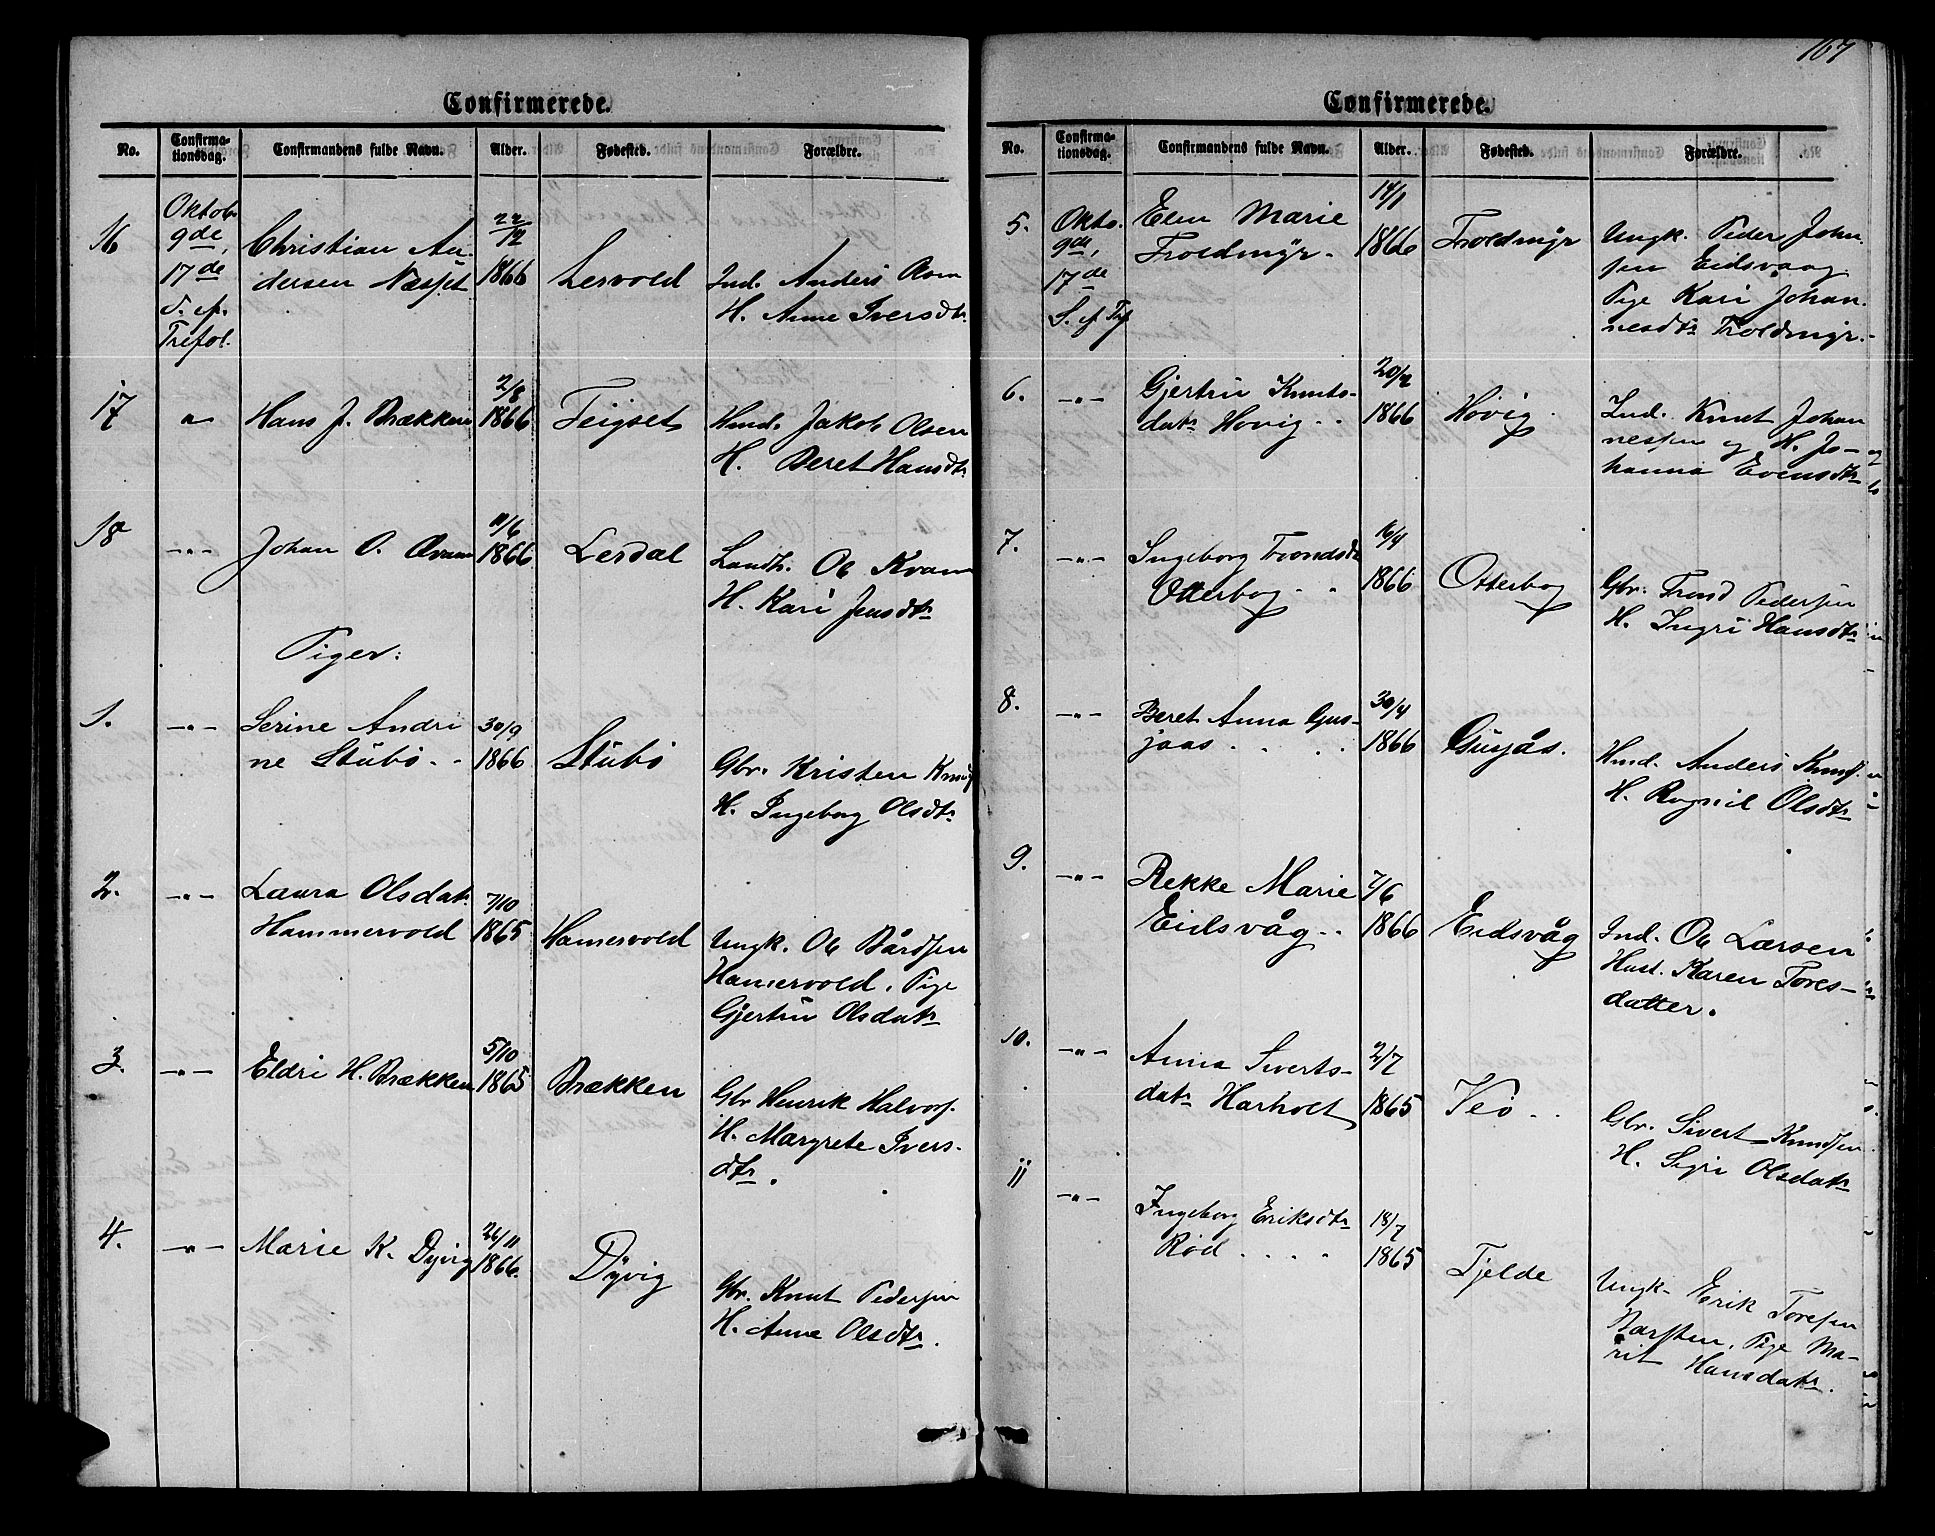 167
Confirmerede.
No. Confirmationsdag. Confirmandens fulde Navn. Alder. Fødested. Forældre.
16 Oktob. 9de, 17de S. e. Trefol. Christian An- 22/12
dersen Næsset 1866 Lervold Ind. Anders
H. Anne Iversdtr.
17 " Hans J. Brækken 2/8 1866 Teigset Hmd. Jakob Olsen
H. Beret Hansdtr
18 -"- Johan O. Kvam 11/6 1866 Lerdal Landh. Ole Kvam
H. Kari Jensdtr
Piger:
1. -"- Serine Andri 30/9
ne Stübø.. 1866 Stübø Gbr. Kristen
H. Ingeborg Olsdtr
2. -"- Laura Olsdatr 7/10
Hammervold 1865 Hamervold Ungk. Ole Bårdsen
Hamervold. Pige
Gjertrü Olsdatr
3. -"- Eldri H. Brækken 5/10 1865 Brækken Gbr Henrik Halvors.
H. Margrete Ivers-
dtr.
4. -"- Marie K. Dyvig 26/11 1866. Dyvig Gbr. Knut Pedersen
H. Anne Olsdtr.
Confirmerede.
No. Confirmationsdag. Confirmandens fulde Navn. Alder. Fødested. Forældre.
5. Oktb. 9de, 17de S. e. Tref Elen Marie 14/1
Troldmyr. 1866 Troldmyr Ungk. Peder Johan-
sen Eidsvaag
Pige Kari Johan-
nesdtr Troldmyr.
6. -"- Gjertrü Knuts- 20/2
datr Hovig.. 1866 Hovig Ind. Knut Johan
nessen og H. Jo-
hanna Evensdtr
7. -"- Ingeborg Trondsdtr 16/4
Otterbog.. 1866 Otterbog Gbr. Trond Pedersen
H. Ingri Hansdtr
8. -"- Beret Anna Gus- 30/4
jaas.... 1866 Gusjås. Hmd. Anders Knuds.
H. Ragnil Olsdtr
9. -"- Rekke Marie 7/6
Eidsvåg.. 1866 Eidsvåg Ind. Ole Larsen
Hust. Karen Tores-
datter.
10. -"- Anna Siverts- 2/7
datr Harholt 1865 Veø.. Gbr. Sivert Knudsen
H. Sigri Olsdatr
11 -"- Ingeborg Eriksdtr 18/7
Rød.... 1865 Tjelde Ungk. Erik Toresen
Narsten. Pige Ma-
rit Hansdatr.